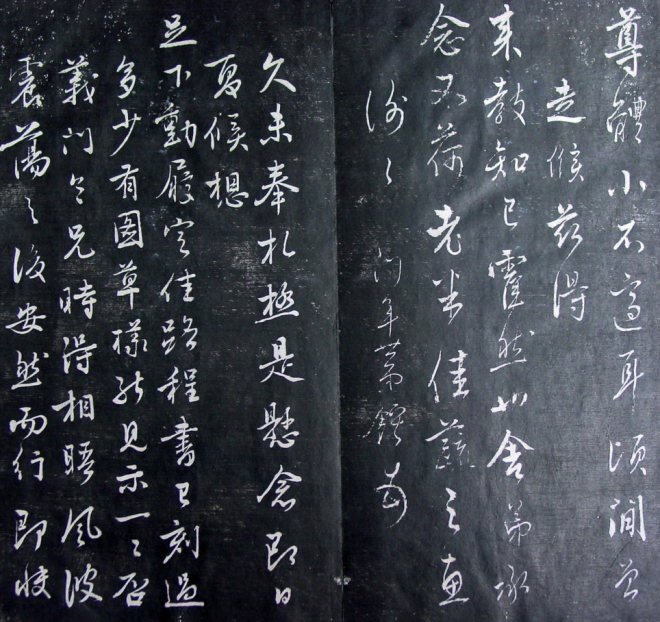 尊體小不適耳頃間曾
走候茲得
來教知已霍然如舍弟承
念又荷老米佳蔬之惠
謝〻
門年弟鐸
久未奉札極是懸念即日
夏候想
足下動履定佳路程書已刻過
多少有圖草樣能見示一〻否
義門令兄時得相晤風波
震蕩之後安然而行即牧